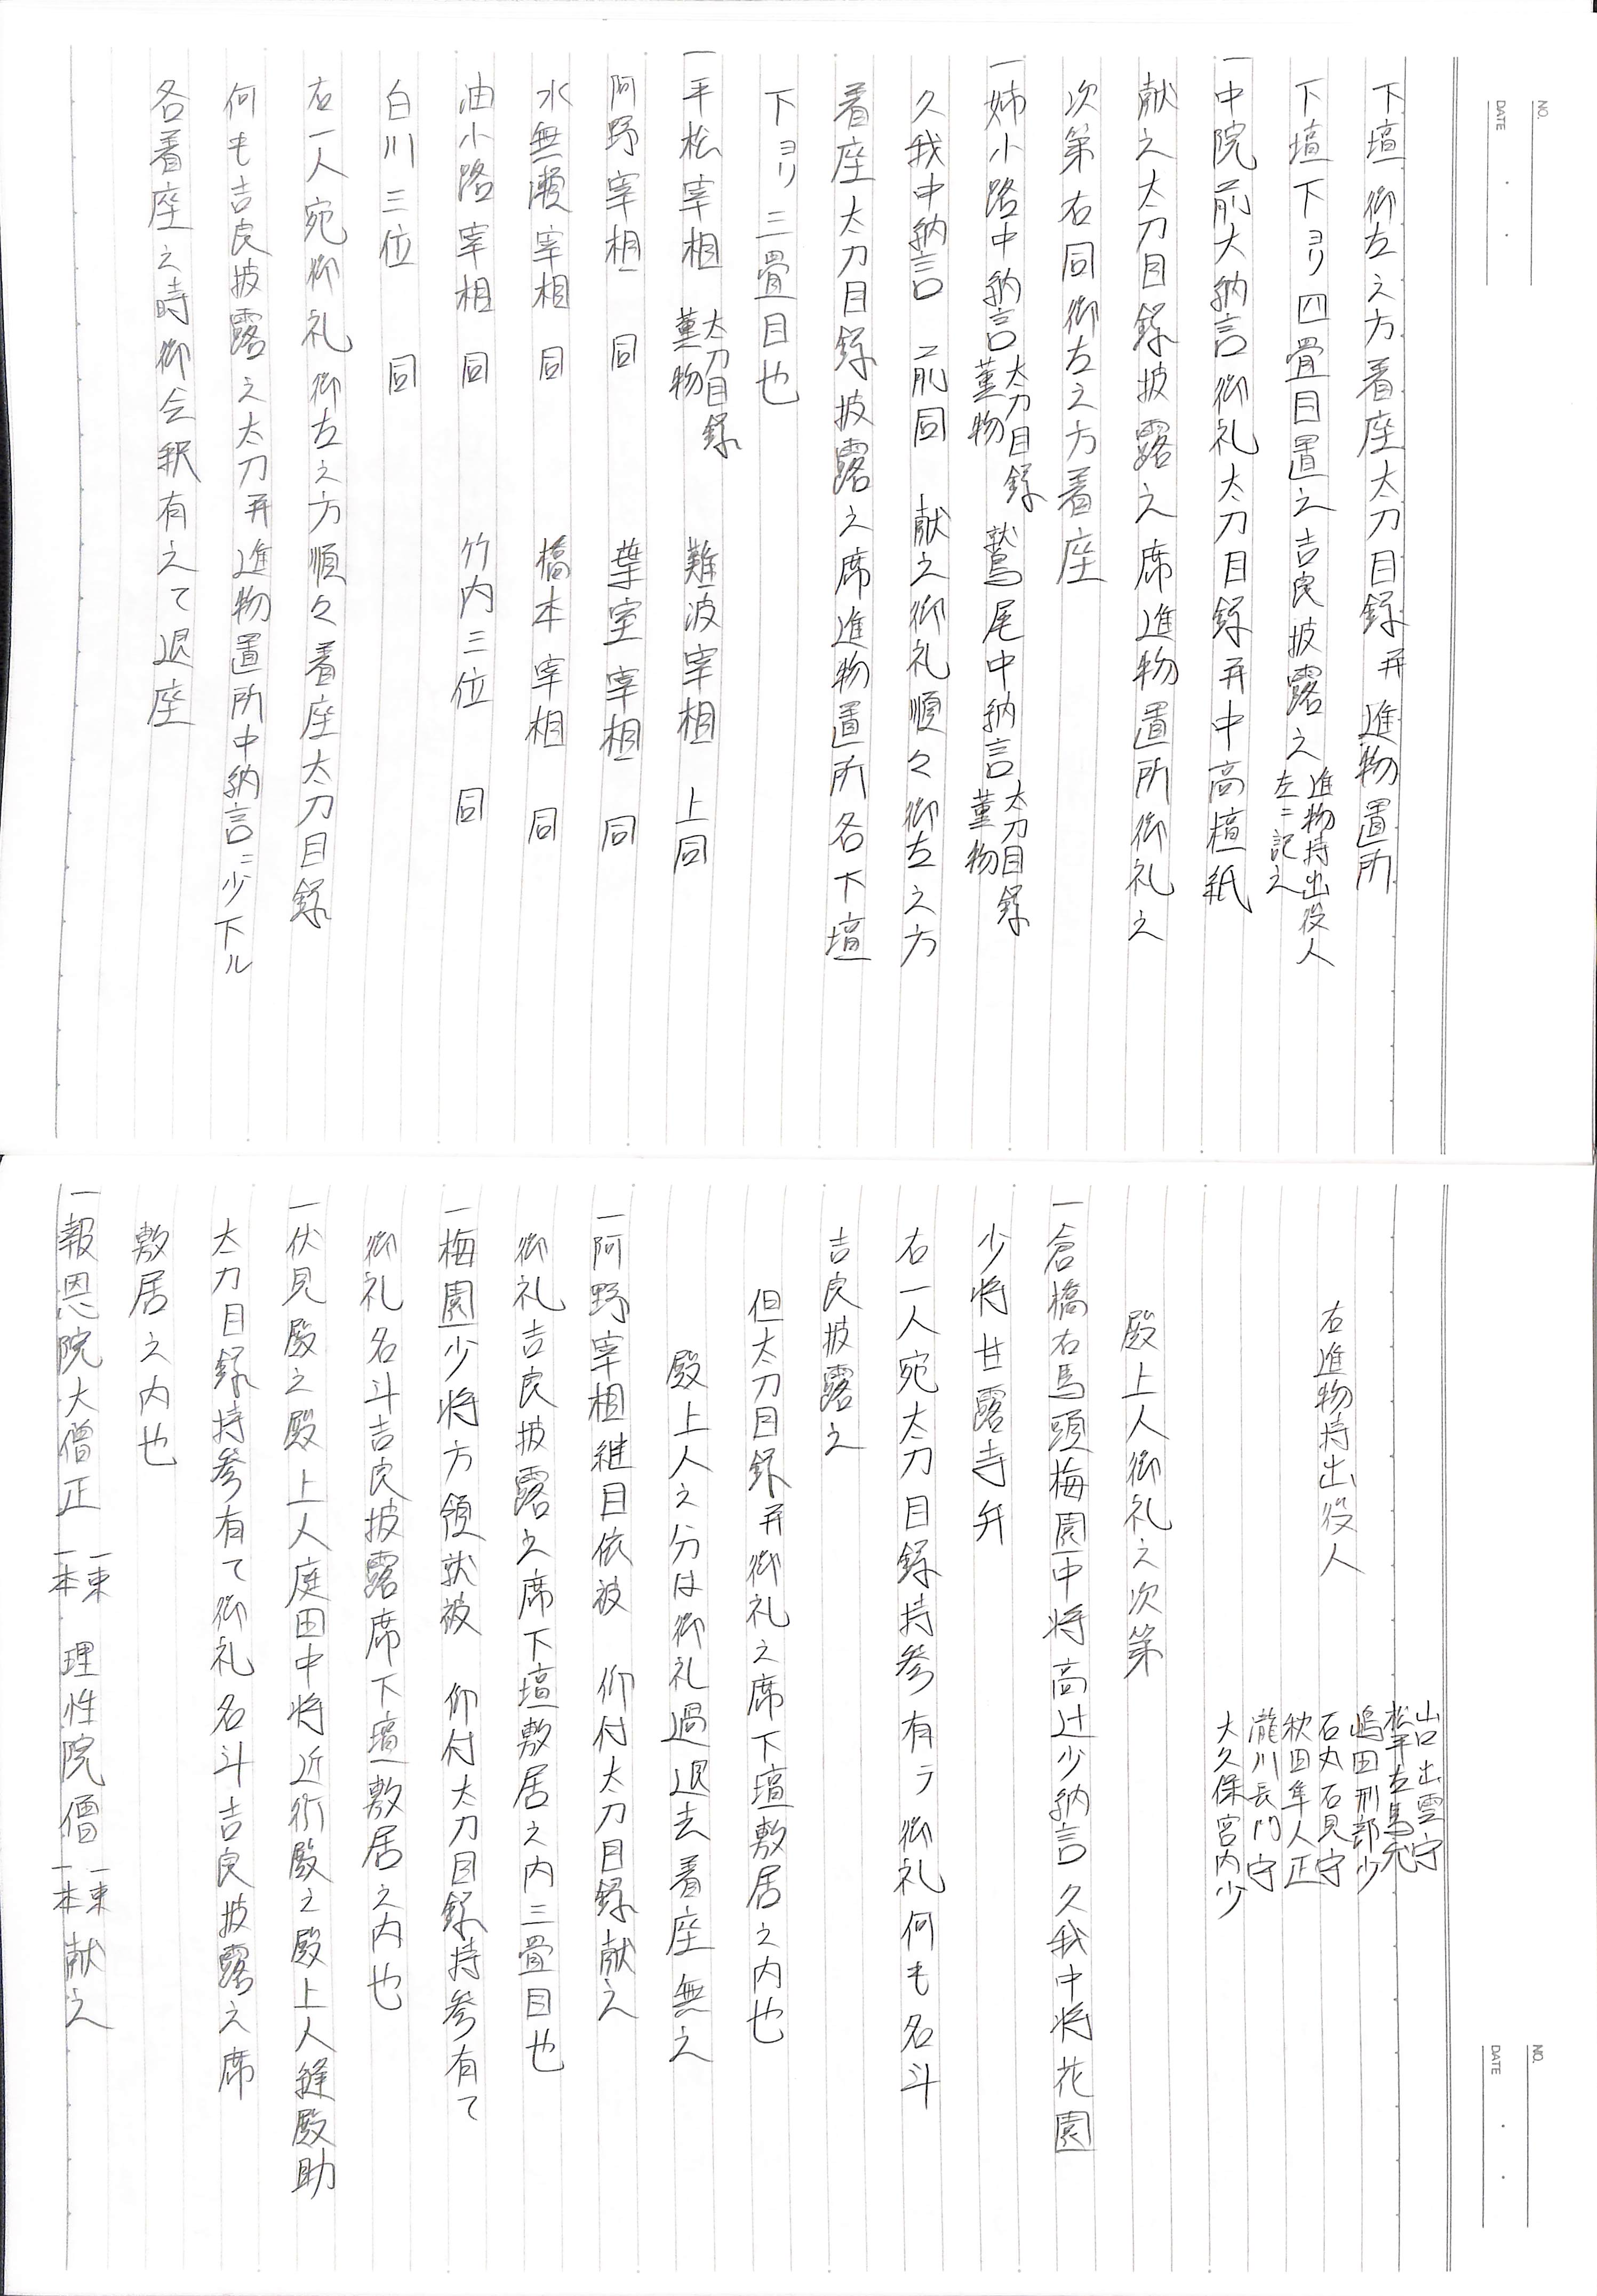 NO.
DATE
下壇御左之方着座太刀目録并進物置所
下壇下ヨリ四畳目置之吉良披露之 進物持出役人
左ニ記之
一中院前大納言御礼太刀目録并中高檀紙
献之太刀目録披露之席進物置所御礼之
次第右同御左之方着座
一姉小路中納言 太刀目録
薫物 鷲尾中納言 太刀目録
薫物
久我中納言 前同 献之御礼順々御左之方
着座太刀目録披露之席進物置所各下壇
下ヨリ三畳目也
一平松宰相 太刀目録
薫物 難波宰相 上同
阿野宰相 同 葉室宰相 同
水無瀬宰相 同 橋本宰相 同
油小路宰相 同 竹内三位 同
白川三位 同
右一人宛御礼御左之方順々着座太刀目録
何も吉良披露之太刀并進物置所中納言ニ少下ル
各着座之時御会釈有之て退座
NO.
DATE
右進物持出役人
山口出雲守
松平左馬允
嶋田刑部少
石丸石見守
秋田隼人正
瀧川長門守
大久保宮内少
殿上人御礼之次第
一倉橋右馬頭梅園中将高辻少納言久我中将花園
少将甘露寺弁
右一人宛太刀目録持参有テ御礼何も名斗
吉良披露之
但太刀目録并御礼之席下壇敷居之内也
殿上人之分は御礼過退去着座無之
一阿野宰相継目依被 仰付太刀目録献之
御礼吉良披露之席下壇敷居之内三畳目也
一梅園少将方領就被 仰付太刀目録持参有て
御礼名斗吉良披露席下壇敷居之内也
一伏見殿之殿上人庭田中将近衛殿之殿上人縫殿助
太刀目録持参有て御礼名斗吉良披露之席
敷居之内也
一報恩院大僧正 一束
一本 理性院僧 一束
一本 献之